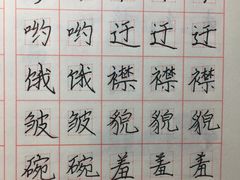 哟哟迂迂迂
饿饿襟襟襟
皱皱貌貌貌
碗碗羞羞羞